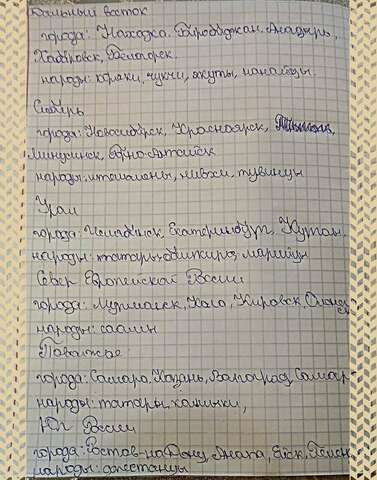 Дальный восток
города: Находка, Биробиджан, Анадырь,
Хабаровск, Белогорск.
народы: коряки, чукчи, якуты, нанайцы.
Сибирь
города: Новосибирск, Красноярск,
Минусинск, Горно-Алтайск
народы: ительмены, нивхи, тувинцы
Урал
города: Челябинск, Екатеринбург, Курган.
народы: татары, башкиры, марийцы
Север Европейской России
города: Мурманск, Кола, Кировск,
народы: саамы
Поволжье:
города: Самара, Казань, Волгоград,
народы: татары, калмыки,
Юг России
города: Ростов-на-Дону, Анапа, Ейск,
народы: осетинцы